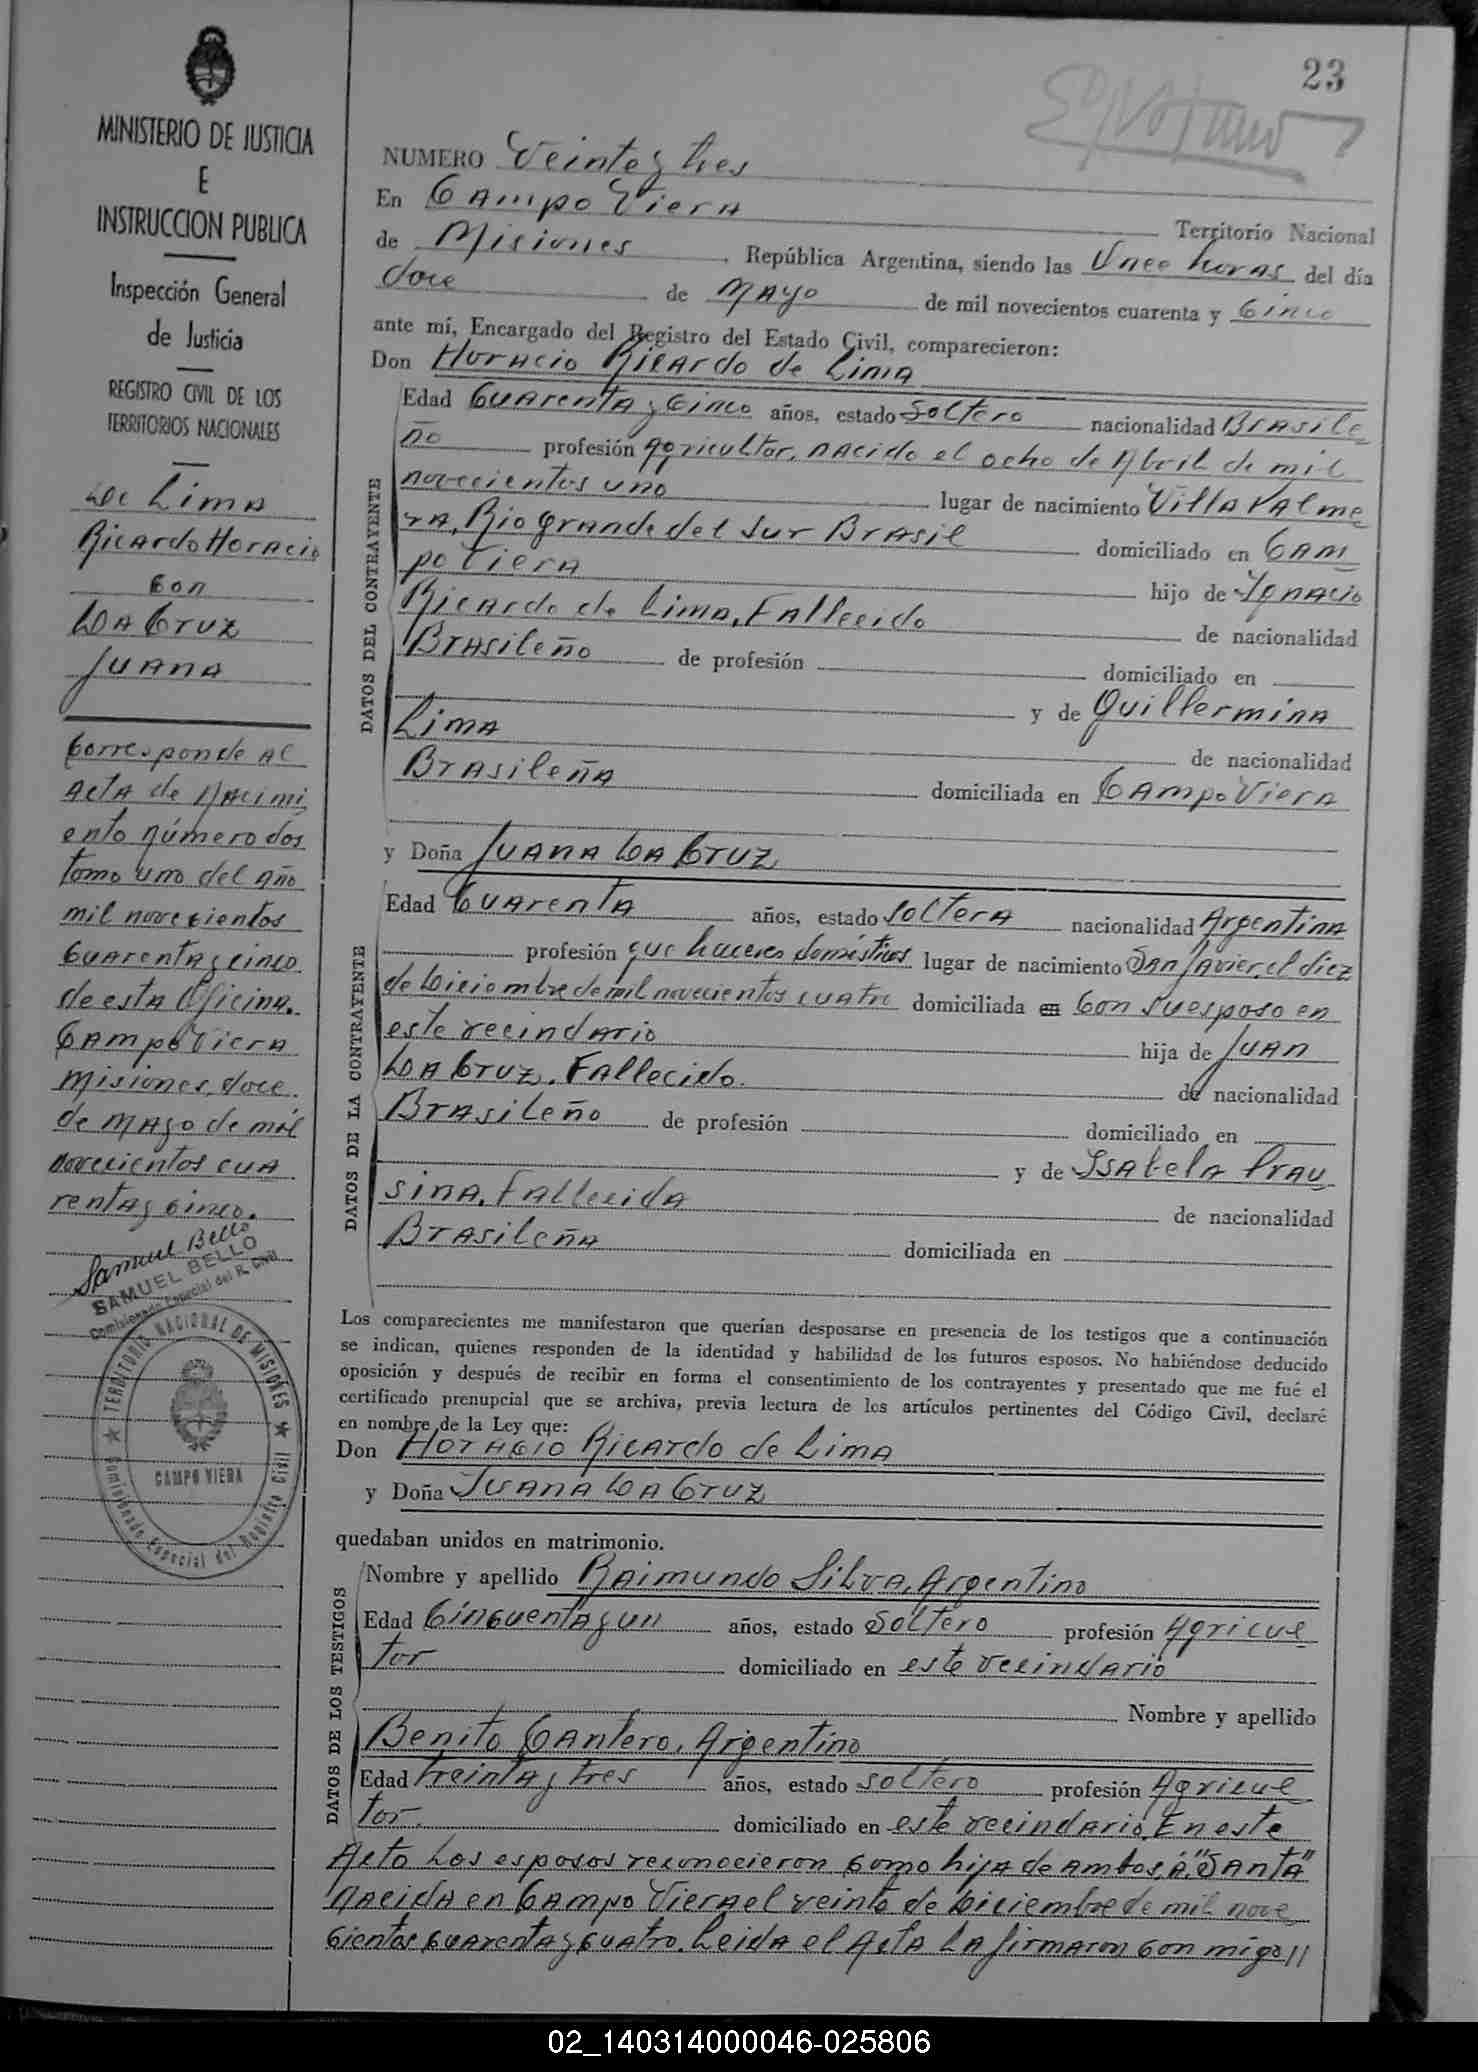 23
MINISTERIO DE JUSTICIA
E
INSTRUCCION PUBLICA
Inspección General
de Justicia
REGISTRO CIVIL DE LOS
TERRITORIOS NACIONALES
De Lima
Ricardo Horacio
con
Da Cruz
Juana
Corresponde al
Acta de Nacimi
ento número dos
tomo uno del año
mil novecientos
cuarenta y cinco
de esta Oficina.
Campo Viera
Misiones, doce
de Mayo de mil
novecientos cua
renta y cinco.
Samuel Bello
SAMUEL BELLO
Comisionado Especial del R. Civil
TERRITORIO NACIONAL DE MISIONES
CAMPO VIERA
Comisionado Especial del Registro Civil
NUMERO Veinte y tres
En Campo Viera Territorio Nacional
de Misiones, República Argentina, siendo las Once horas del día
doce de Mayo de mil novecientos cuarenta y Cinco
ante mí, Encargado del Registro del Estado Civil, comparecieron:
Don Horacio Ricardo de Lima
DATOS DEL CONTRAYENTE
Edad Cuarenta y Cinco años, estado Soltero nacionalidad Brasile
ño profesión Agricultor, nacido el ocho de Abril de mil
novecientos uno lugar de nacimiento Villa Palme
ra, Rio Grande del Sur Brasil domiciliado en Cam
po Viera hijo de Ygnacio
Ricardo de Lima, Fallecido de nacionalidad
Brasileño de profesión domiciliado en
y de Guillermina
Lima de nacionalidad
Brasileña domiciliada en Campo Viera
y Doña Juana Da Cruz
DATOS DE LA CONTRAYENTE
Edad Cuarenta años, estado Soltera nacionalidad Argentina
profesión que haceres domésticos lugar de nacimiento San Javier, el diez
de Diciembre de mil novecientos cuatro domiciliada en Con su esposo en
este vecindario hija de Juan
Da Cruz, Fallecido. de nacionalidad
Brasileño de profesión domiciliado en
y de Ysabela Prau
sina, Fallecida de nacionalidad
Brasileña domiciliada en
Los comparecientes me manifestaron que querían desposarse en presencia de los testigos que a continuación
se indican, quienes responden de la identidad y habilidad de los futuros esposos. No habiéndose deducido
oposición y después de recibir en forma el consentimiento de los contrayentes y presentado que me fué el
certificado prenupcial que se archiva, previa lectura de los artículos pertinentes del Código Civil, declaré
en nombre de la Ley que:
Don Horacio Ricardo de Lima
y Doña Juana Da Cruz
quedaban unidos en matrimonio.
DATOS DE LOS TESTIGOS
Nombre y apellido Raimundo Silva, Argentino
Edad Cincuenta y un años, estado Soltero profesión Agricul
tor domiciliado en este vecindario
Nombre y apellido
Benito Cantero, Argentino
Edad treinta y tres años, estado soltero profesión Agricul
tor. domiciliado en este vecindario. En este
Acto los esposos reconocieron como hija de ambos, á "Santa"
nacida en Campo Viera el veinte de Diciembre de mil nove
cientos cuarenta y cuatro. Leida el Acta la firmaron con migo //
02_140314000046-025806